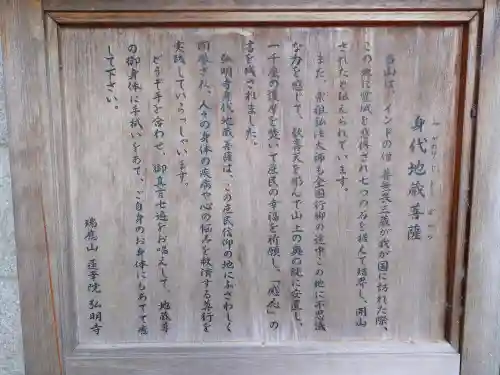 身代地蔵菩薩
み がわり じ ぞう ぼ さつ
当山は、インドの僧 善無畏三蔵が我が国に訪れた際、
この地に霊域を感得され七つの石を積んで結界し、開山
されたと伝えられています。
また、宗祖弘法大師も全国行脚の途中この地に不思議
な力を感じて、歓喜天を彫んで山上の奥の院に安置し、
一千座の護摩を焚いて庶民の幸福を祈願し、「感応」の
言を残されました。
弘明寺身代地蔵菩薩は、この庶民信仰の地にふさわしく
開眼され、人々の身体の疾病や心の悩みを救済する素行を
実践していらっしゃいます。
どうぞ手を合わせ、御真言七遍をお唱えして、地蔵尊
の御身体に手拭いをあて、ご自身のお身体にもあてて癒
して下さい。
瑞應山 蓮華院 弘明寺